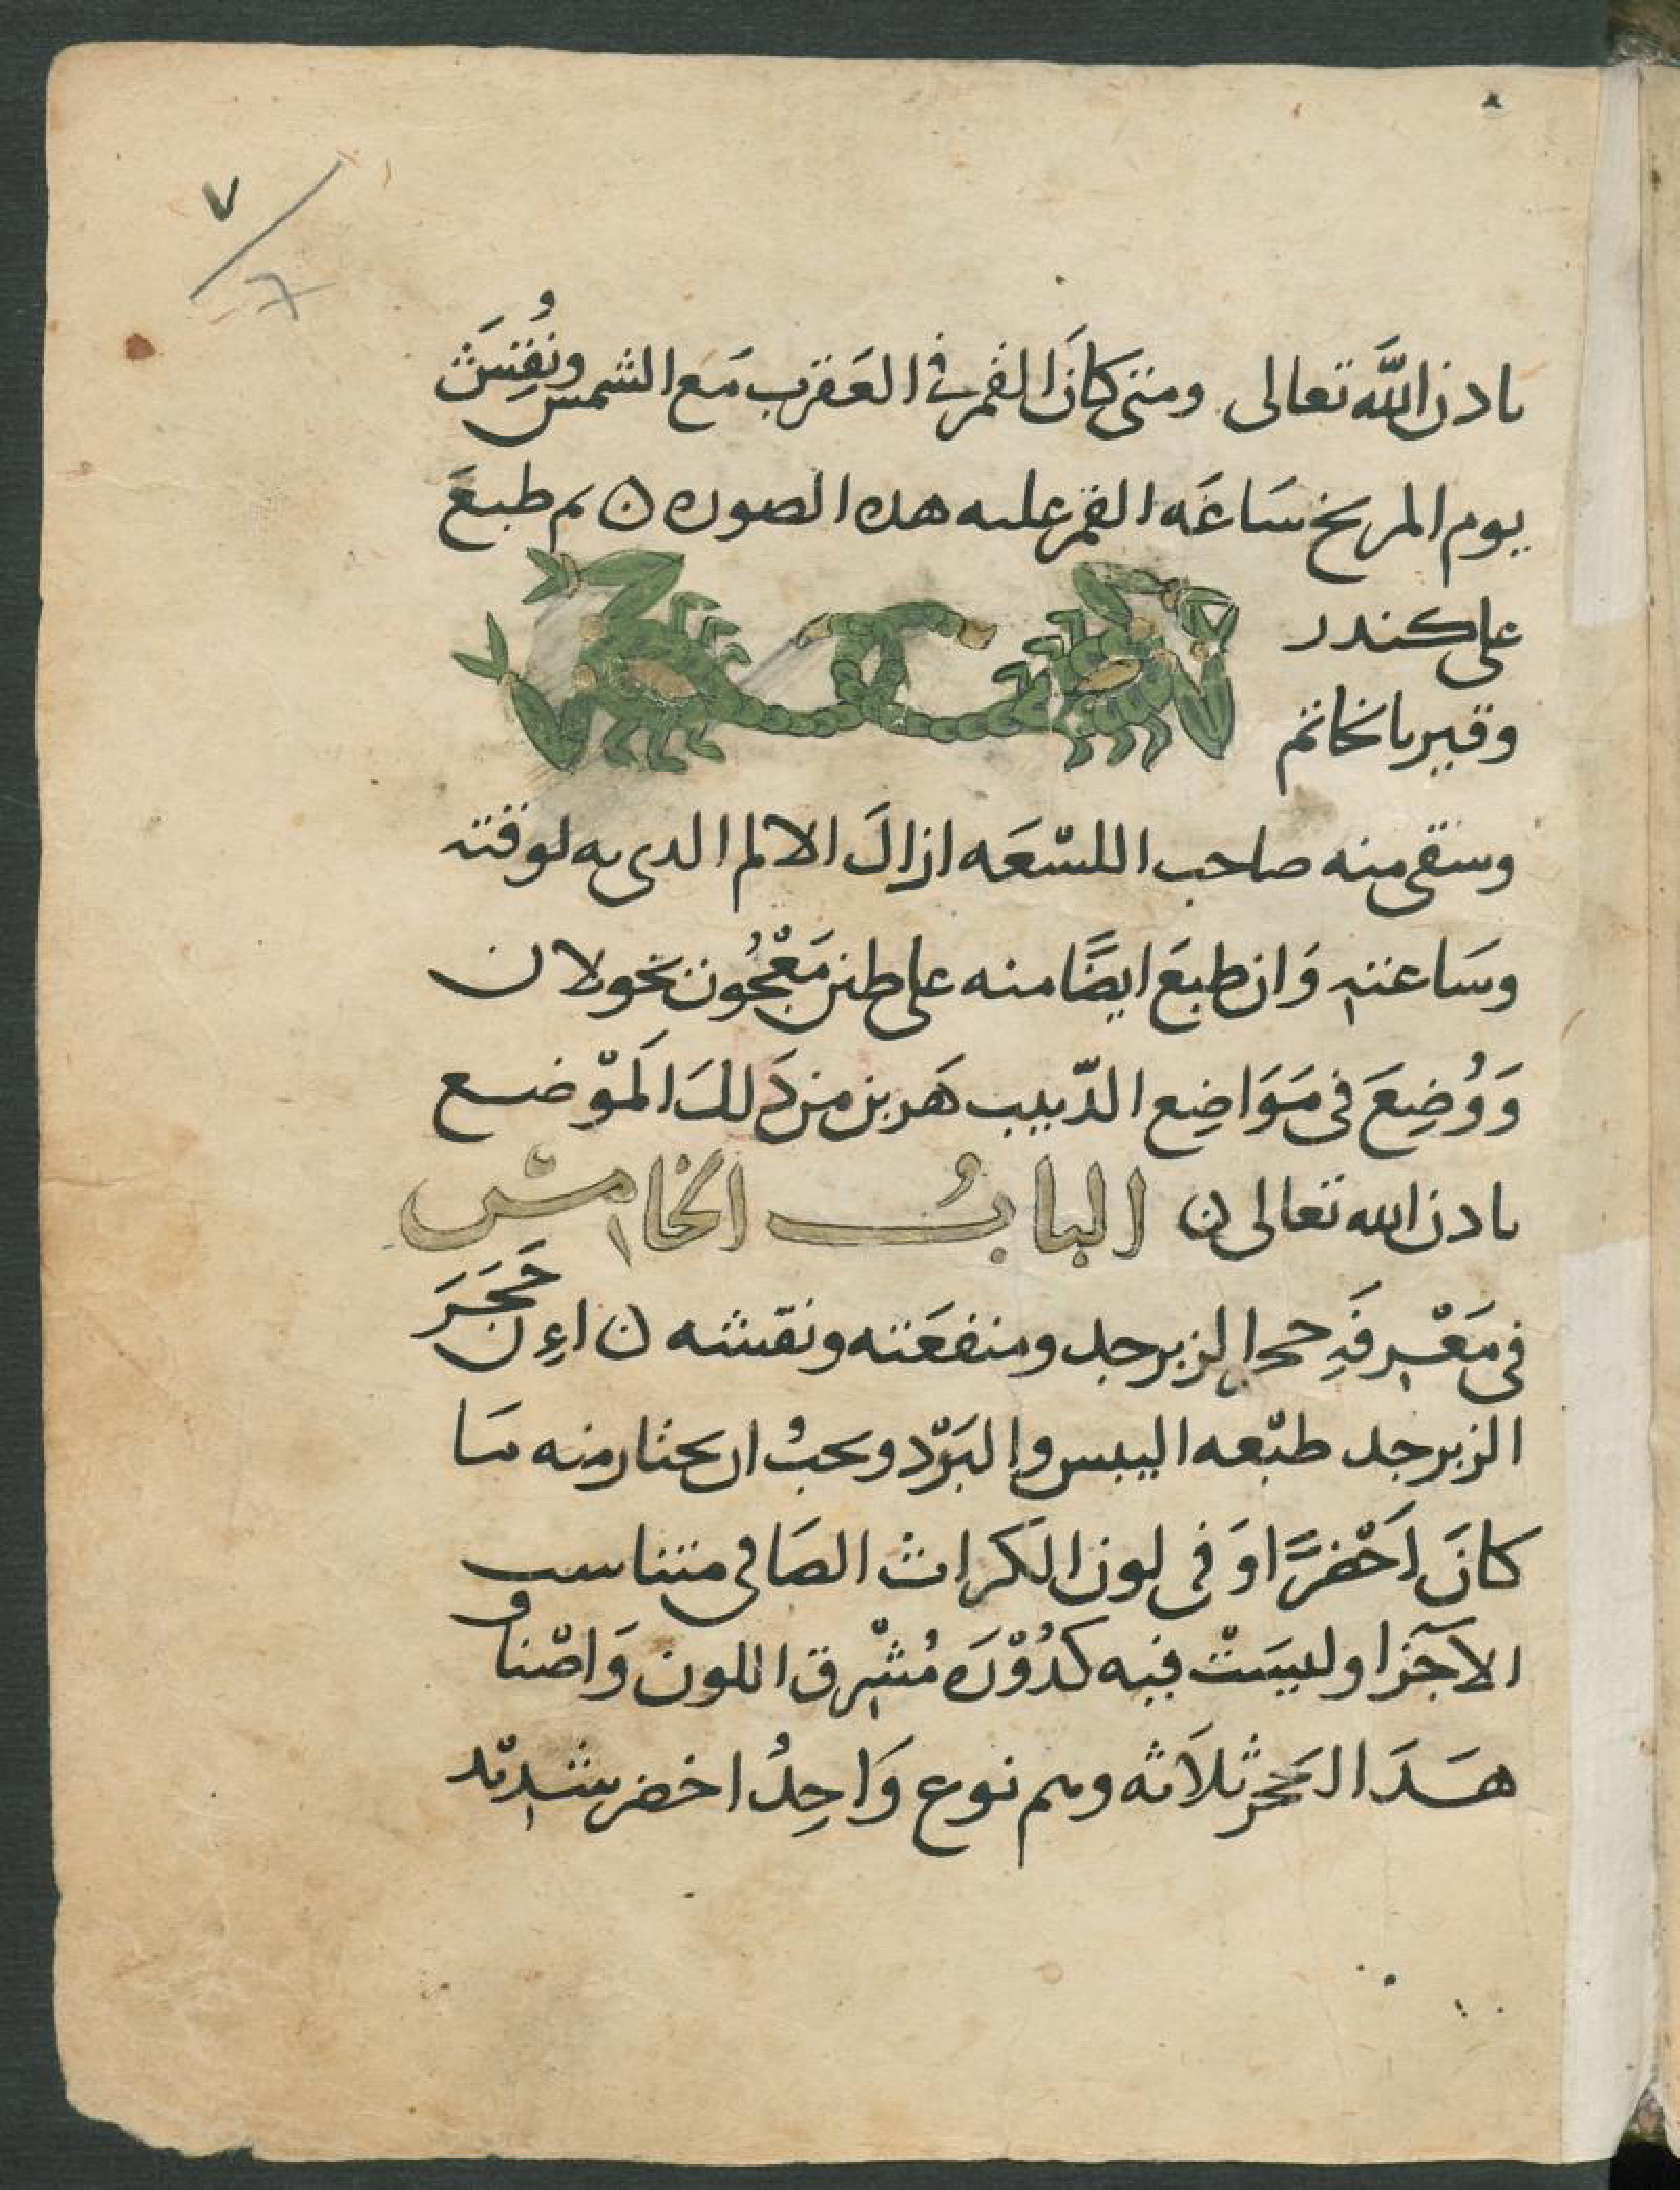 ٨
٧
7
بادن اللَّه تعالى ومتى كانَ القمر في العَقرب مَع الشمس ونُقِشَ
يوم المريخ سَاعَه القمر عليه هده الصوره ن ثم طبعَ
على كندر
وقير بالخاتم
وسقى منه صاحب اللسْعَه ازالَ الالم الدى به لوقته
وسَاعته وَان طبعَ ايضًا منه على طين مَعْجُون بخولان
وَوُضِعَ فى مَوَاضِع الدّبيب هَربن من دَلكَ المَوْضع
بادن الله تعالى ن البابُ الخامسْ
فى مَعْرِفَةِ حجر الزبرجد ومنفعَته ونقشه ن اءِن حَجَرَ
الزبرجد طبْعه اليبس والبَرْد ويجبُ ان يختار منه مَا
كانَ اَخْضرًا اوَ فى لون الكراث الصَافى متناسب
الاَجَزا وليسَتْ فيه كدُوْرَه مُشْرِق اللون وَاصْناف
هَدَا الحَجر ثلاَثه وهم نوع وَاحِدُ اخضر شديْد